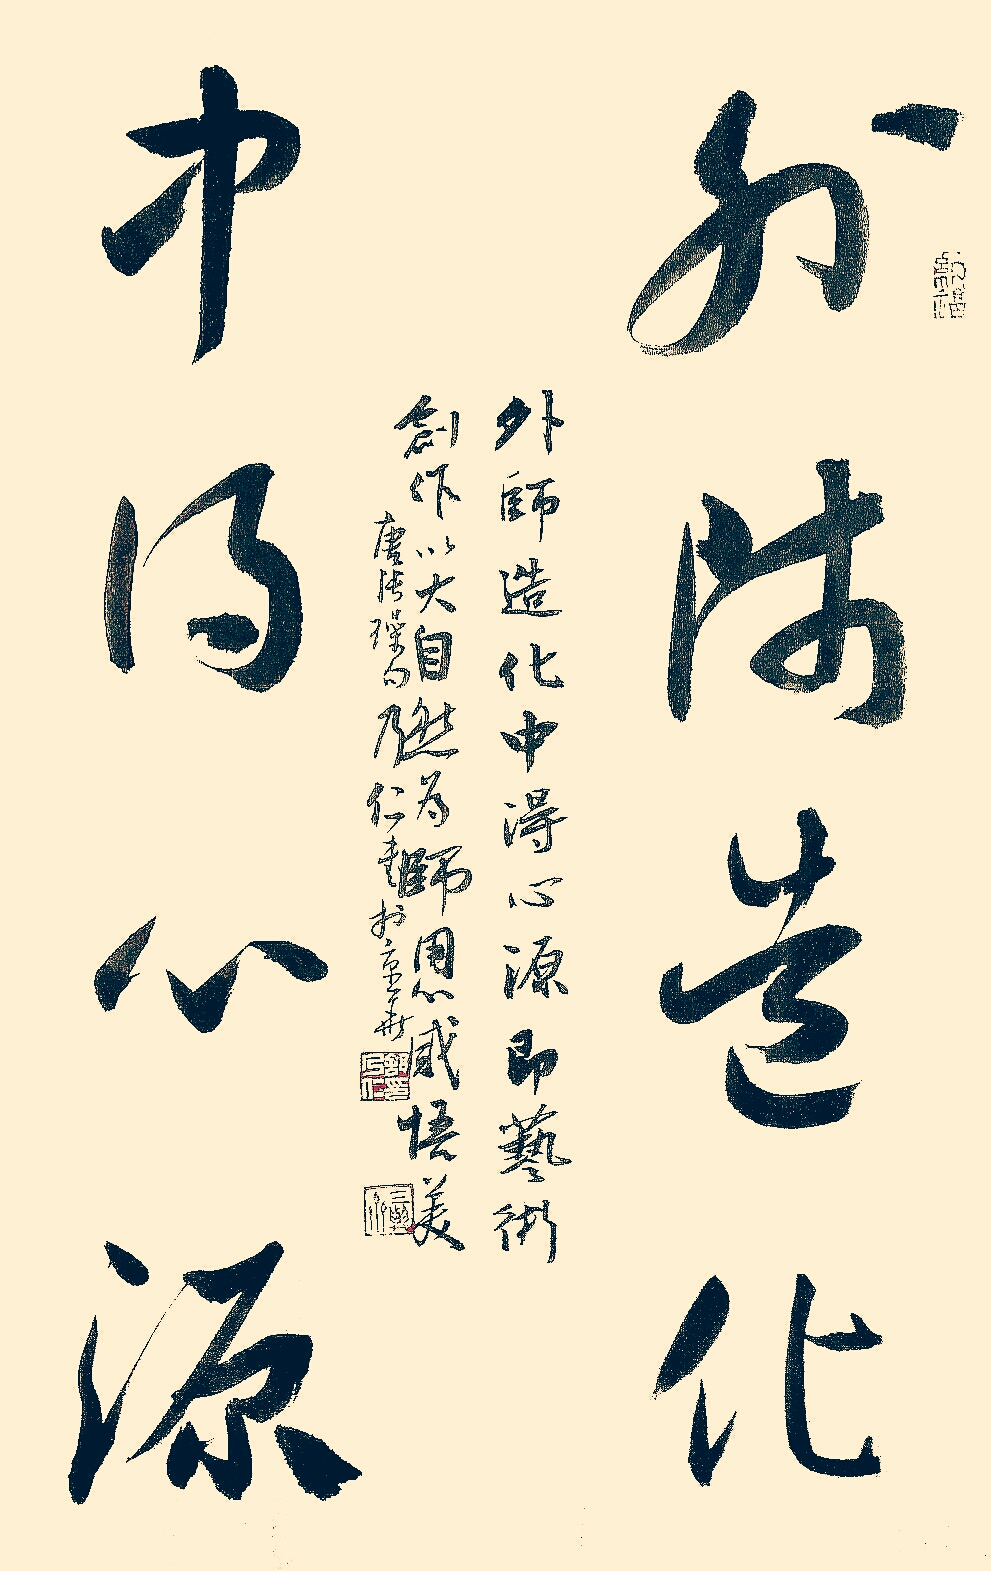 外師造化
外師造化中得心源即藝術
創作以大自然為師用心感悟美
唐張璪句乃仁書於京華
中得心源